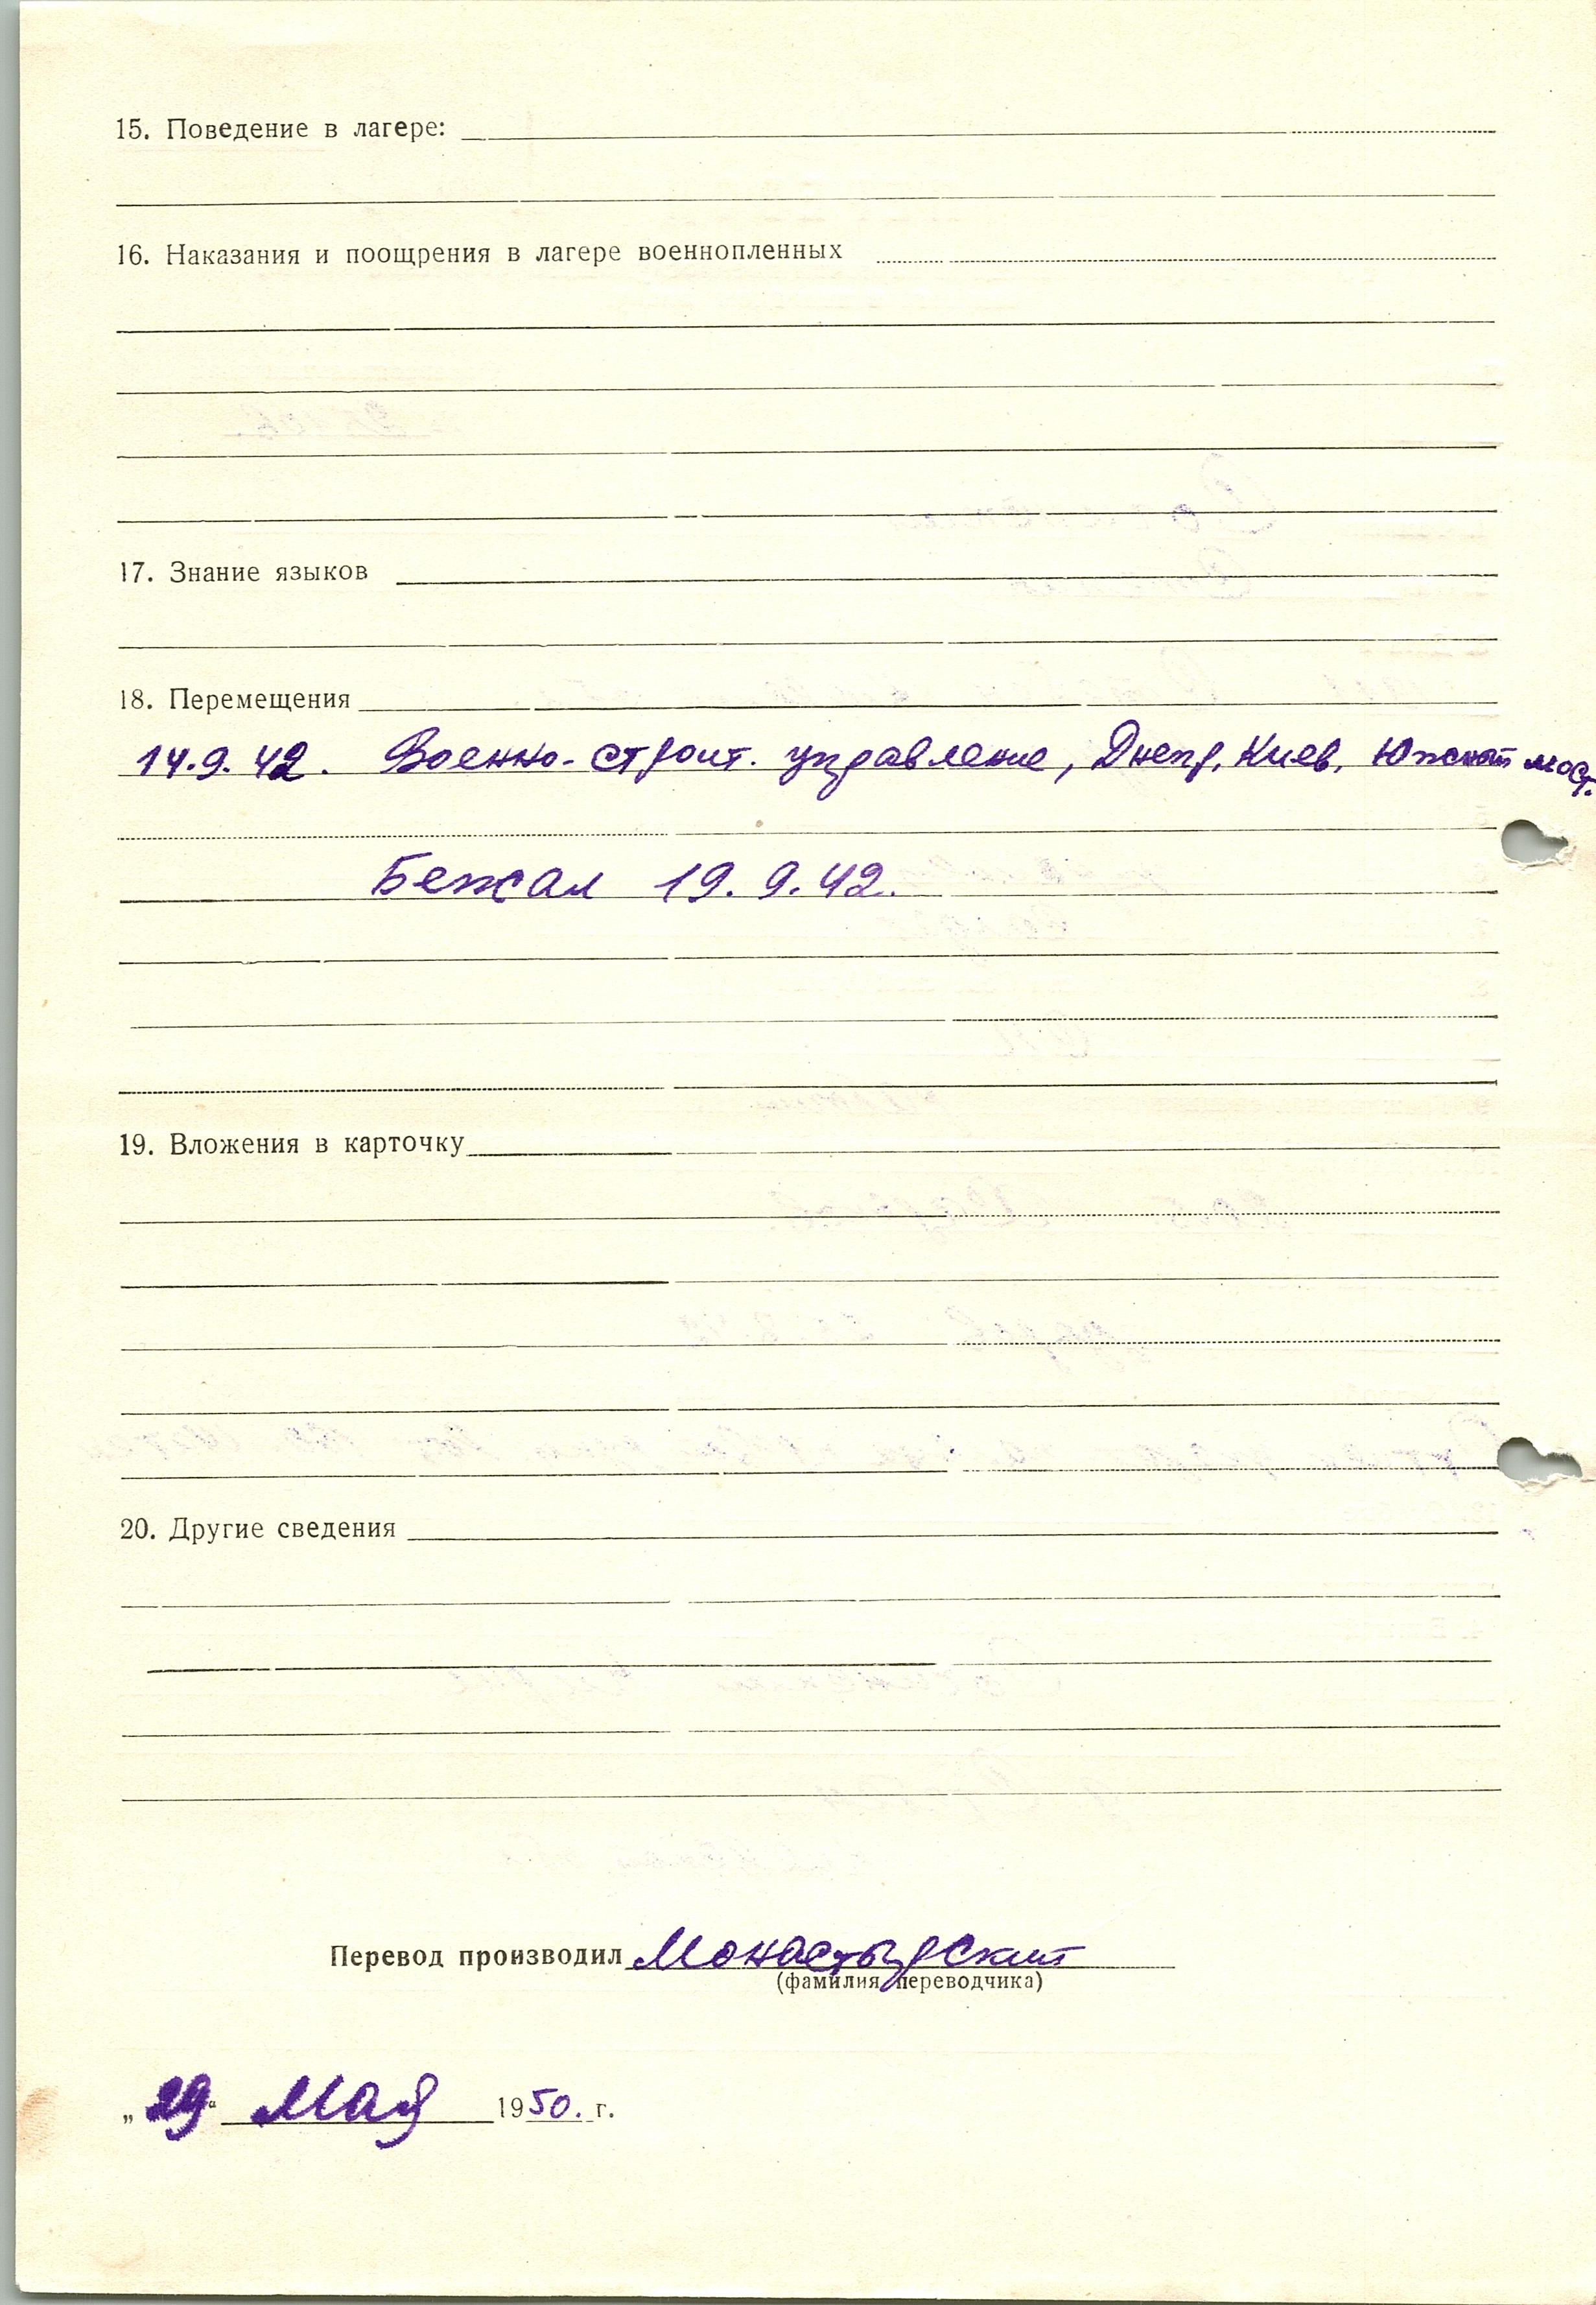 15. Поведение в лагере:
16. Наказания и поощрения в лагере военнопленных
17. Знание языков
18. Перемещения
14.9.42. Военно-строит. управление, Днепр, Киев, Южный мост.
Бежал 19.9.42.
19. Вложения в карточку
20. Другие сведения
Перевод производил Монастырский
(фамилия переводчика)
„29“ Мая 1950. г.